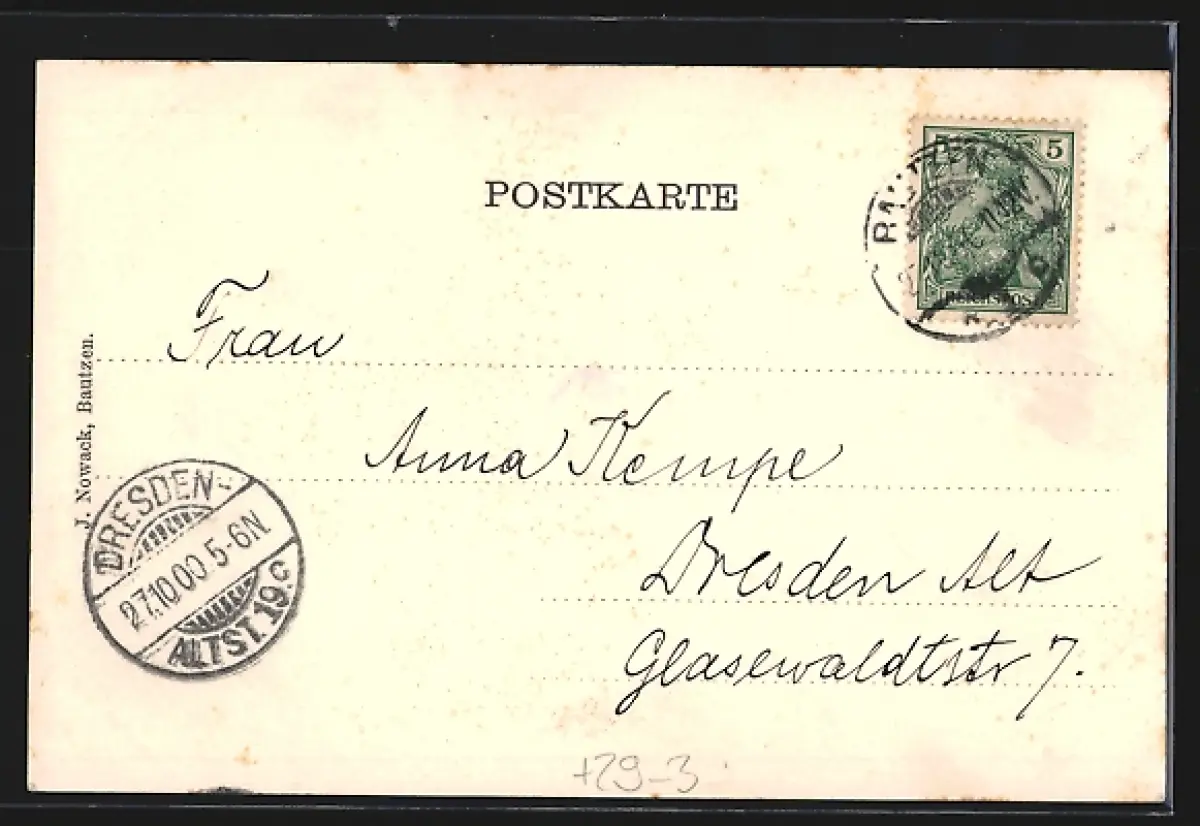 POSTKARTE
5
BAUTZEN
REICHSPOST
Frau
Anna Kempe
Dresden Alt
Glasewaldtstr 7.
J. Nowack, Bautzen.
DRESDEN-
27.10.00 5-6N.
ALTST. 19.c
+29-3